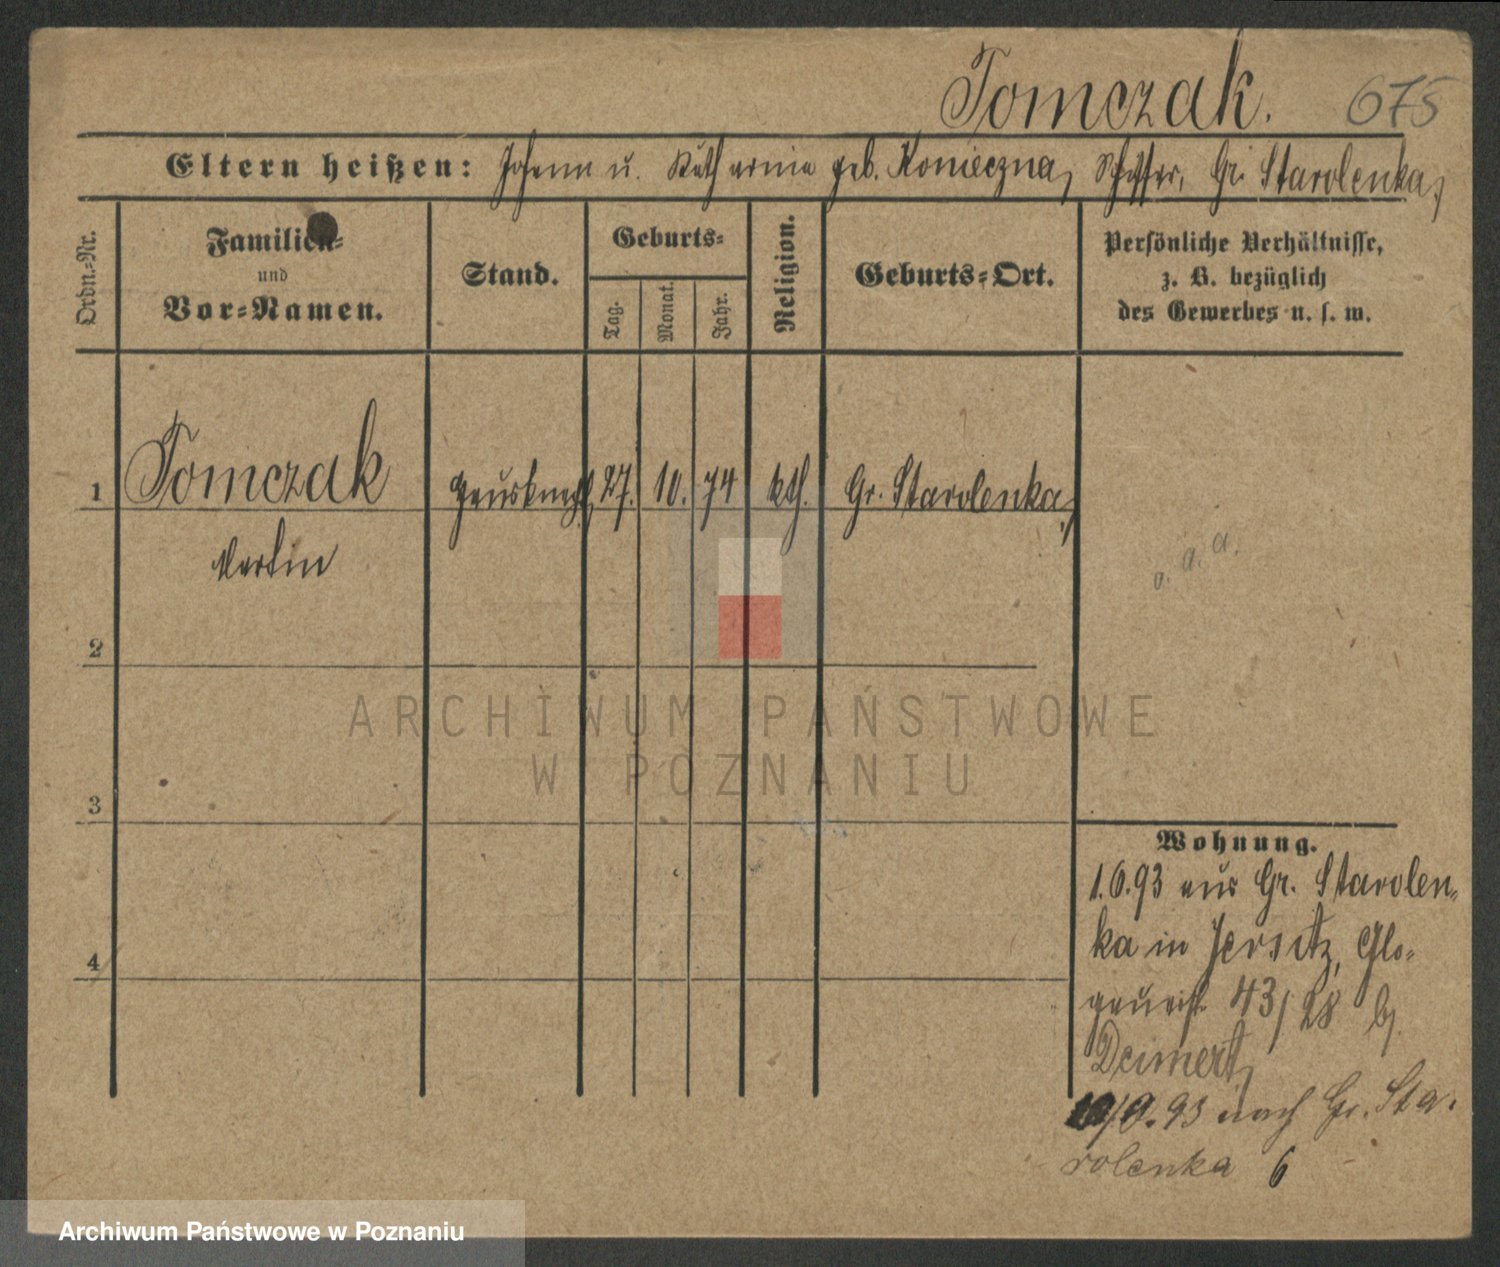 Tomczak. 675
Eltern heißen: Johann u. Katharina geb. Konieczna, Schäffer, Gr. Starolenka,
Ordn.-Nr.
Familien-
und
Vor-Namen.
Stand.
Geburts-
Tag.
Monat.
Jahr.
Religion.
Geburts-Ort.
Persönliche Verhältnisse,
z. B. bezüglich
des Gewerbes u. s. w.
1 Tomczak 27. 10. 74 kth. Gr. Starolenka,
Martin
o. a. a.
2
ARCHIWUM PAŃSTWOWE
W POZNANIU
3
4
Wohnung.
1.6.93 aus Gr. Starolen-
ka in Jersitz, Glo-
gauerst. 43/28 b/
Deimert,
9.93 nach Gr. Sta-
rolenka 6
Archiwum Państwowe w Poznaniu